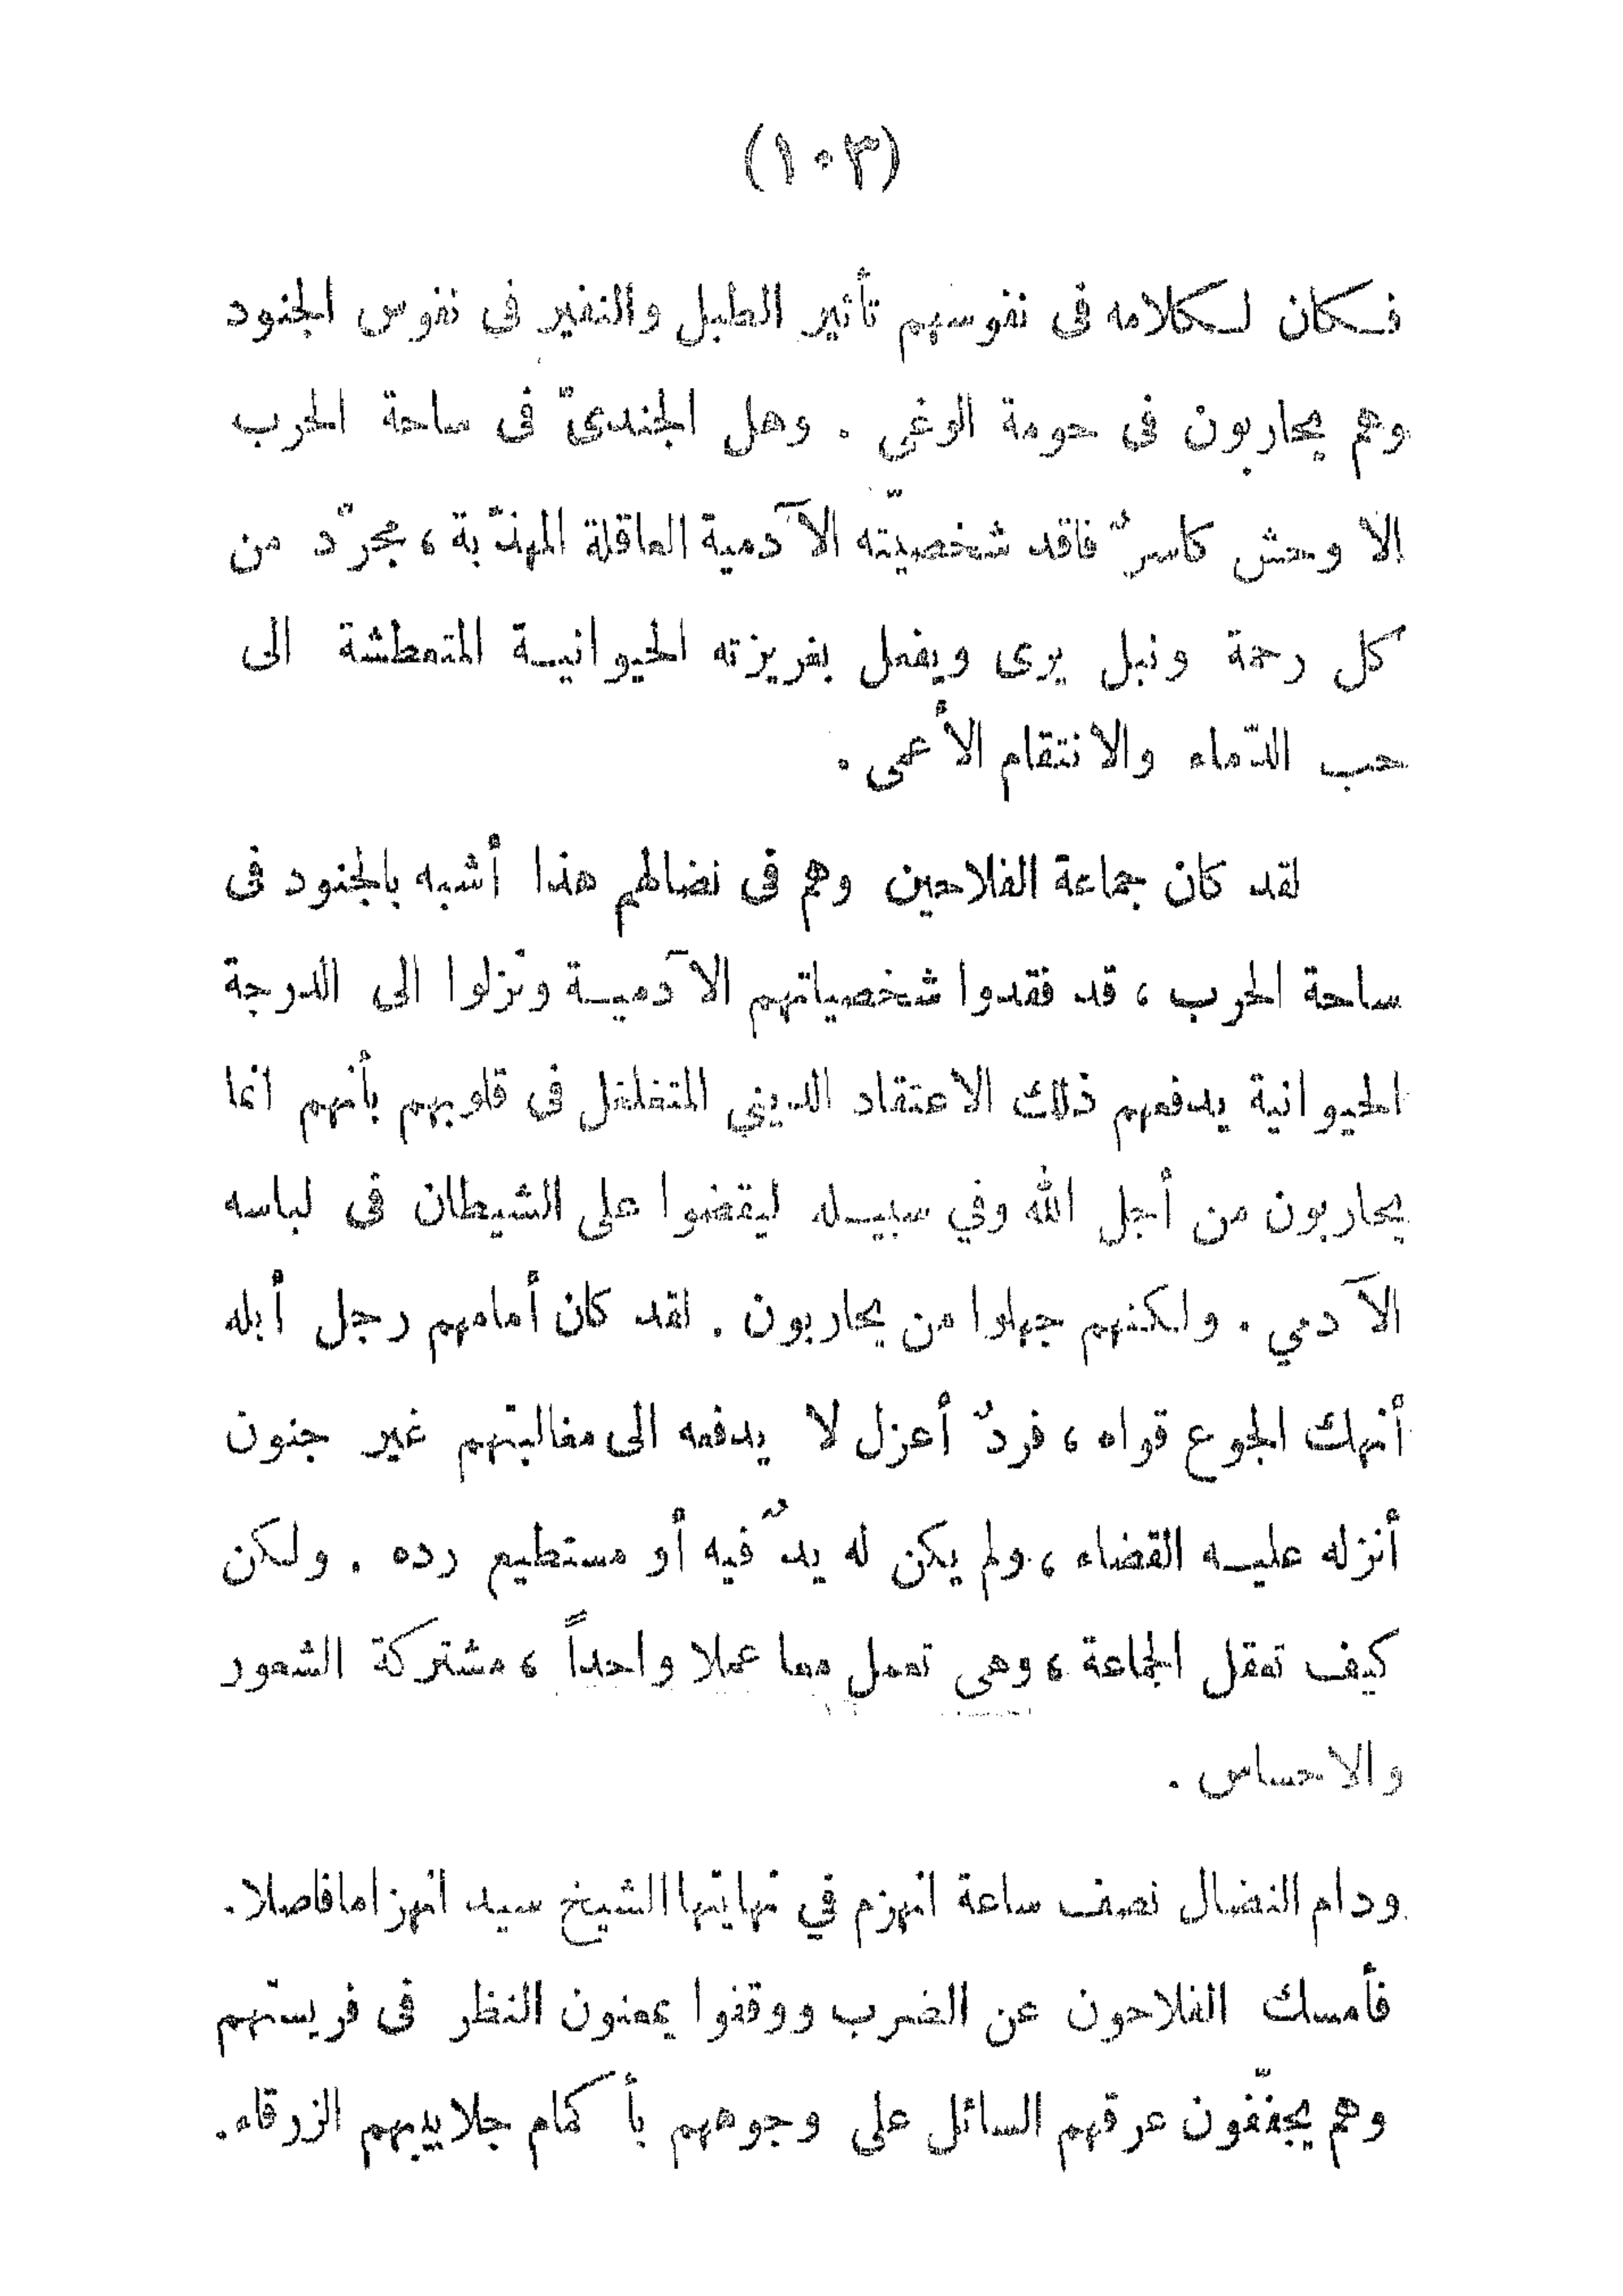 (١٠٣)
فكان لكلامه فى نفوسهم تأثير الطبل والنفير فى نفوس الجنود
وهم يحاربون فى حومة الوغى . وهل الجندىّ فى ساحة الحرب
الا وحش كاسرٌ فاقد شخصيّته الآدمية العاقلة المهذّبة ، مجرّد من
كل رحمة ونبل يرى ويفعل بغريزته الحيوانية المتعطشة الى
حب الدّماء والانتقام الأعمى .
لقد كان جماعة الفلاحين وهم فى نضالهم هذا أشبه بالجنود فى
ساحة الحرب ، قد فقدوا شخصياتهم الآدمية ونزلوا الى الدرجة
الحيوانية يدفعهم ذلك الاعتقاد الديني المتغلغل فى قلوبهم بأنهم انما
يحاربون من أجل الله وفي سبيله ليقضوا على الشيطان فى لباسه
الآدمي . ولكنهم جهلوا من يحاربون . لقد كان أمامهم رجل أبله
أنهك الجوع قواه ، فردٌ أعزل لا يدفعه الى مغالبتهم غير جنون
أنزله عليه القضاء ، ولم يكن له يدٌ فيه أو مستطيع رده . ولكن
كيف تعقل الجماعة ، وهى تعمل معا عملا واحداً ، مشتركة الشعور
والاحساس .
ودام النضال نصف ساعة انهزم في نهايتها الشيخ سيد انهزاما فاصلا .
فأمسك الفلاحون عن الضرب ووقفوا يمعنون النظر فى فريستهم
وهم يجفّفون عرقهم السائل على وجوههم بأكمام جلابيبهم الزرقاء .